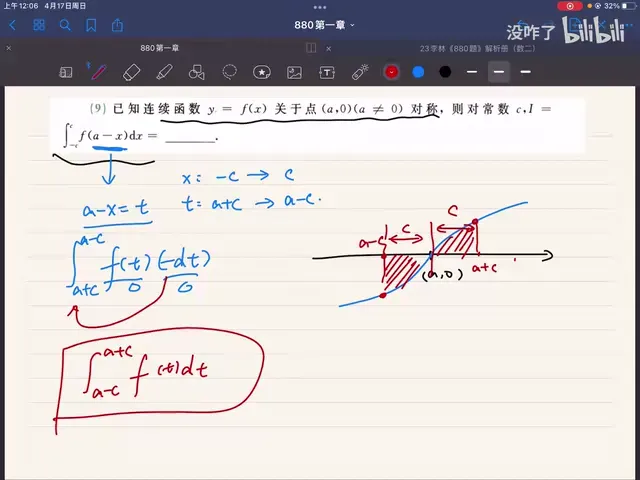 上午12:06 4月17日周日
32%
没咋了 bilibili
880第一章
880第一章
23学林《880题》解析册(数二)
(9) 已知连续函数 y = f(x) 关于点(a,0)(a ≠ 0) 对称, 则对常数 c, I =
∫_{-c}^{c} f(a-x)dx = ______.
x: -c → c
a-x=t
t: a+c → a-c.
∫_{a+c}^{a-c} f(t) (-dt)
0 0
∫_{a-c}^{a+c} f(t)dt
c
c
a-c
(a,0)
a+c